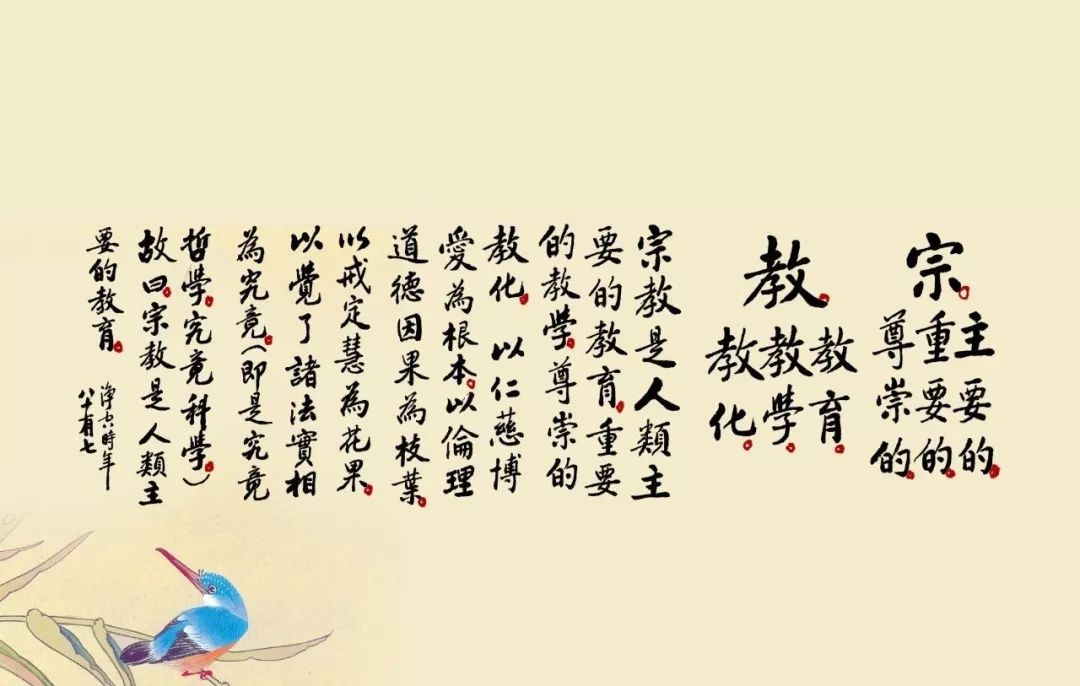 宗。
主要的。
重要的。
尊崇的。
教。
教育。
教學。
教化。
宗教是人類主
要的教育。重要
的教學。尊崇的
教化。以仁慈博
愛為根本。以倫理
道德因果為枝葉。
以戒定慧為花果。
以覺了諸法實相
為究竟。（即是究竟
哲學。究竟科學。）
故曰。宗教是人類主
要的教育。
淨空時年
八十有七